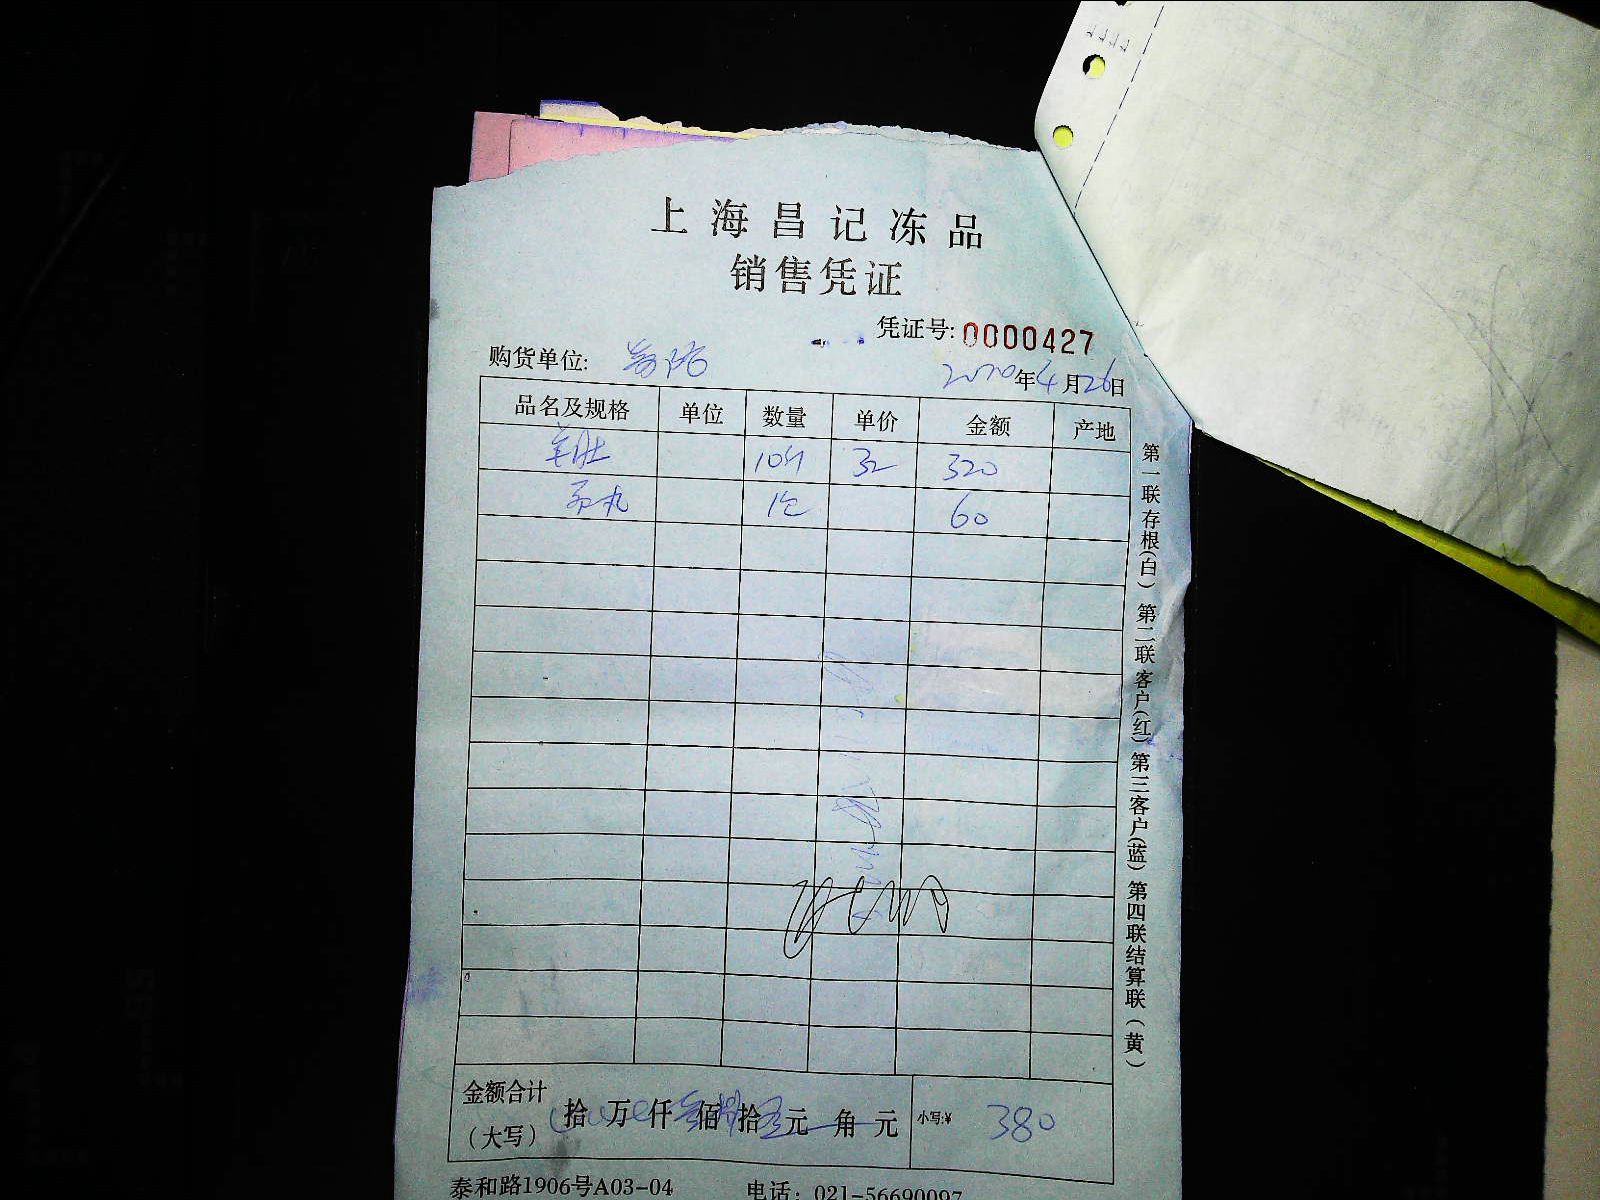 上海昌记冻品
销售凭证
凭证号: 0000427
购货单位:
2020年4月26日
品名及规格 单位 数量 单价 金额 产地
羊肚 10斤 32 320
丸 1包 60
第一联存根(白) 第二联客户(红) 第三客户(蓝) 第四联结算联(黄)
金额合计
(大写) 拾 万 仟 叁佰 捌拾 元 角 元 小写:¥ 380
泰和路1906号A03-04 电话: 021-56690097